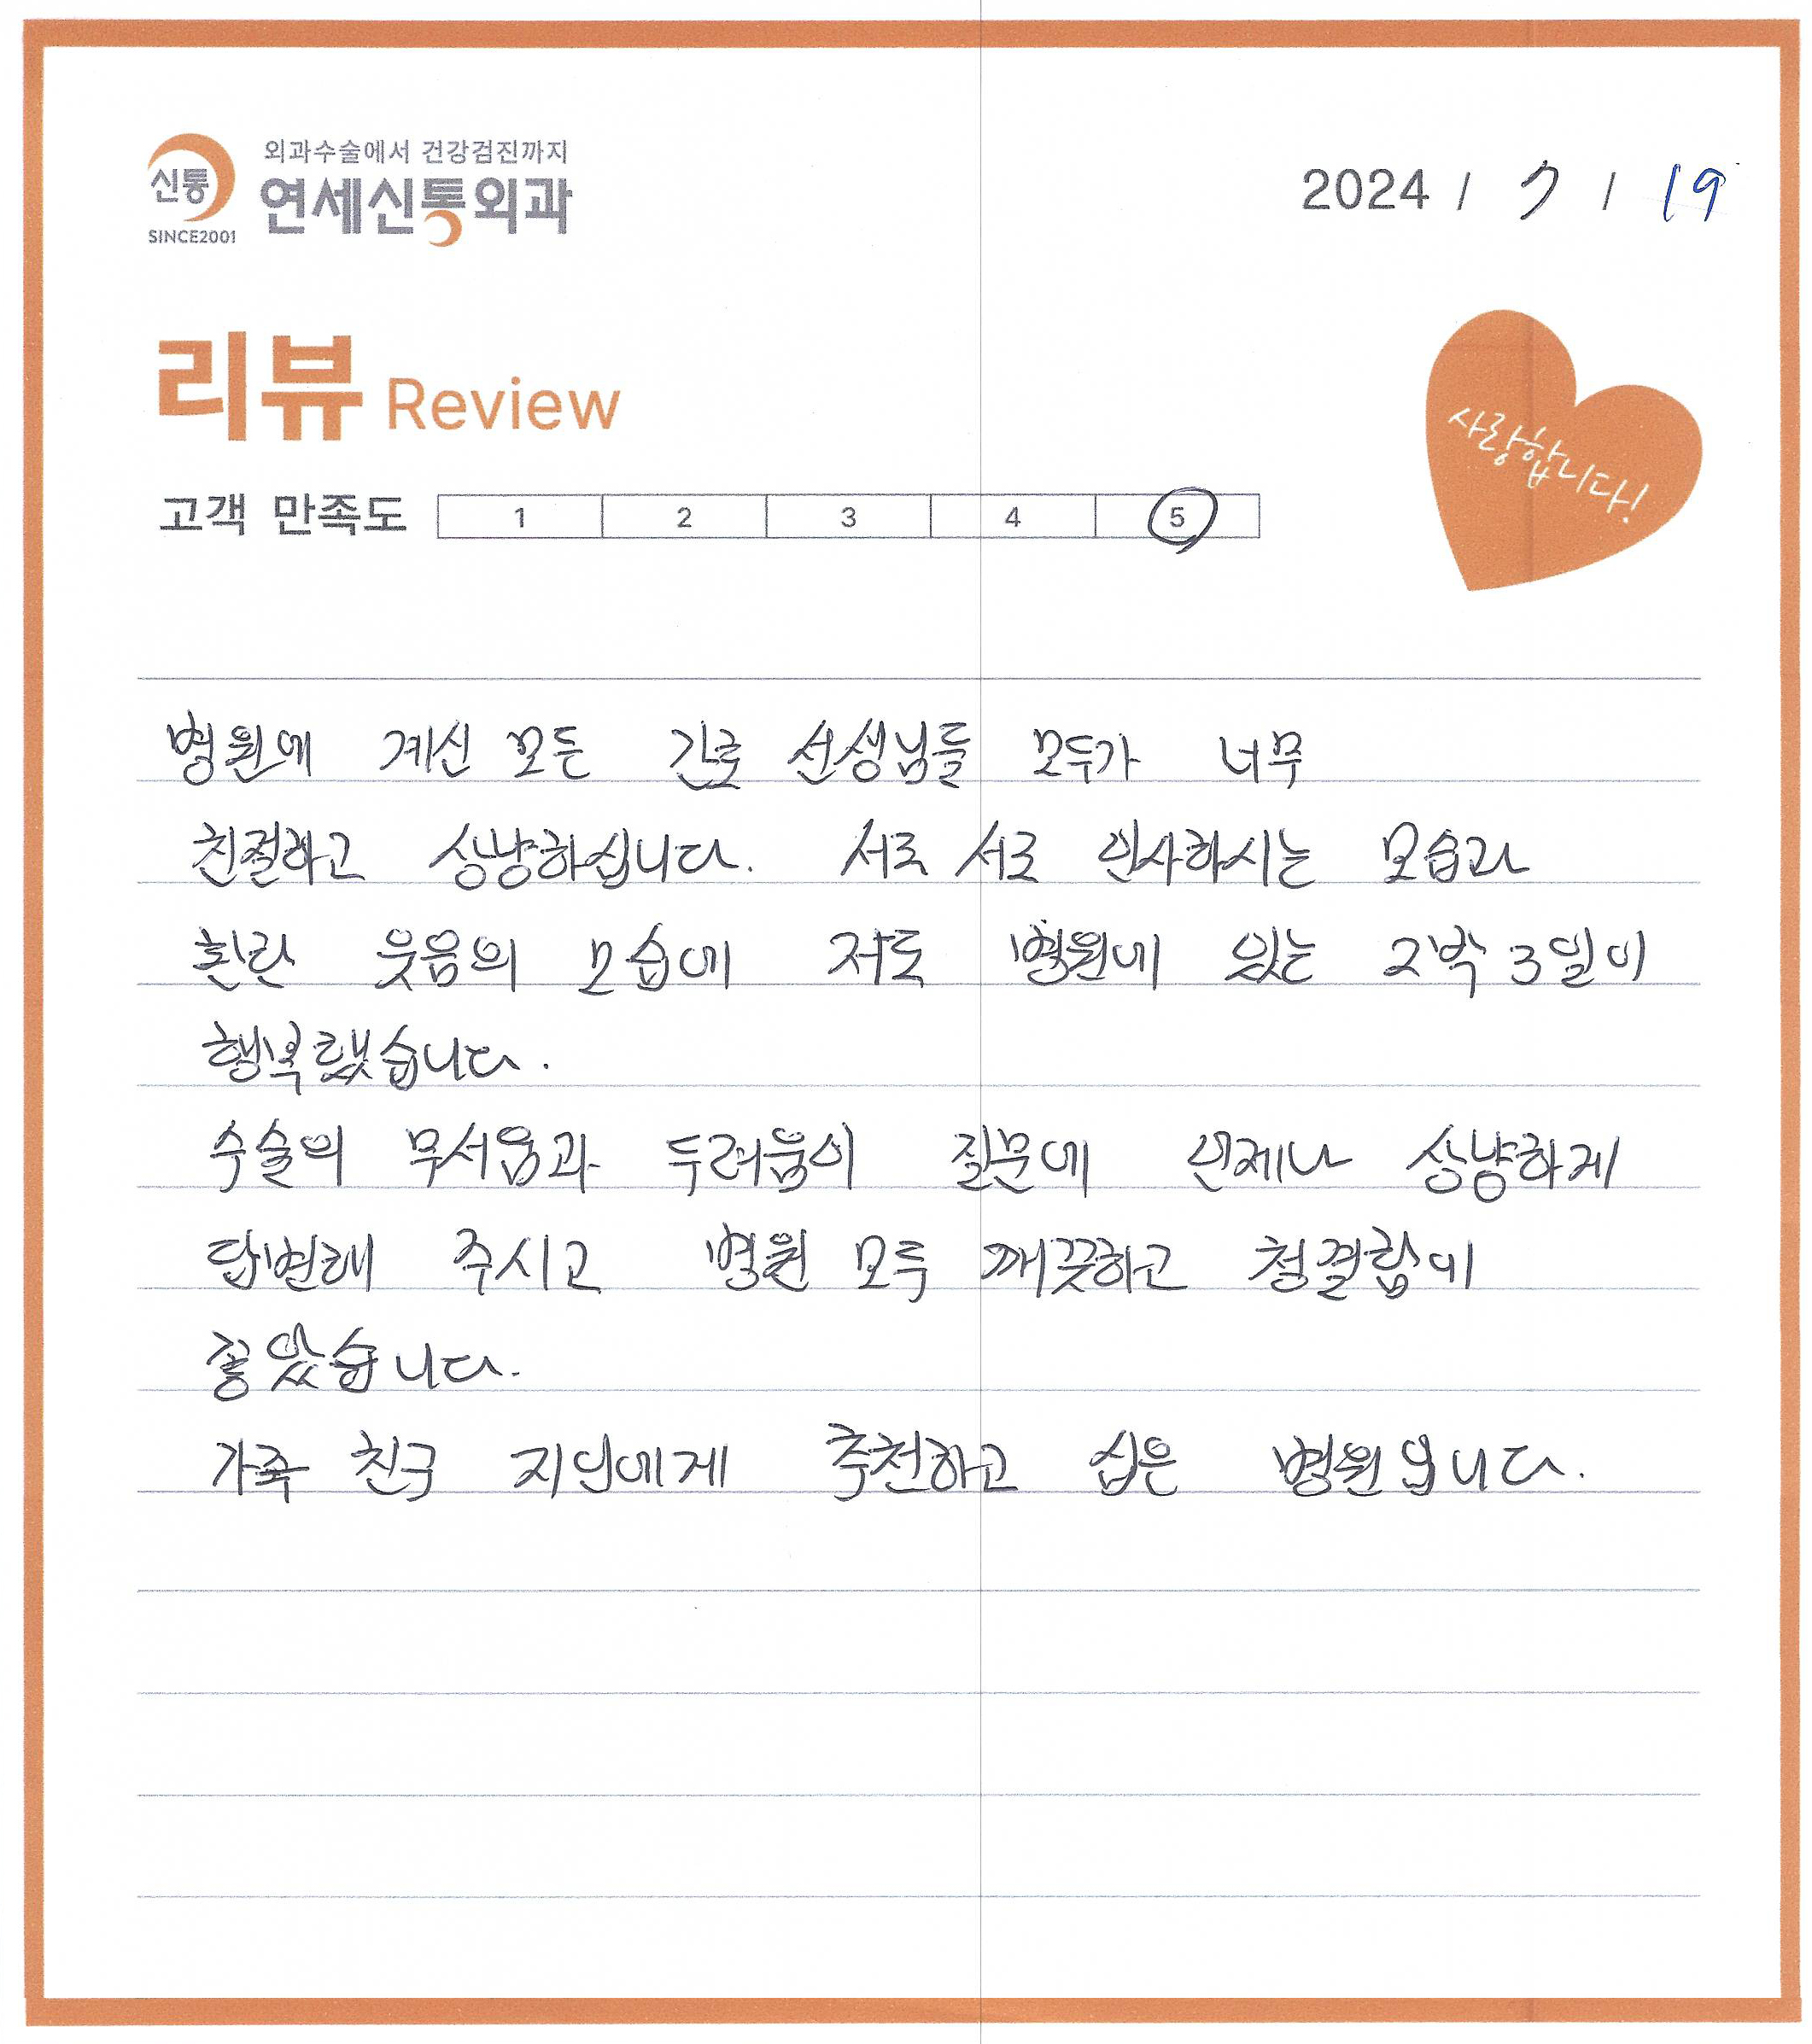 외과수술에서 건강검진까지
신통 연세신통외과
SINCE2001
2024 / 7 / 19
리뷰 Review
사랑합니다!
고객 만족도 1 2 3 4 5
병원에 계신 모든 간호 선생님들 모두가 너무
친절하고 상냥하십니다. 서로 서로 인사하시는 모습과
환한 웃음의 모습에 저도 병원에 있는 2박 3일이
행복했습니다.
수술의 무서움과 두려움이 질문에 언제나 상냥하게
답변해 주시고 병원 모두 깨끗하고 청결함이
좋았습니다.
가족 친구 지인에게 추천하고 십은 병원입니다.